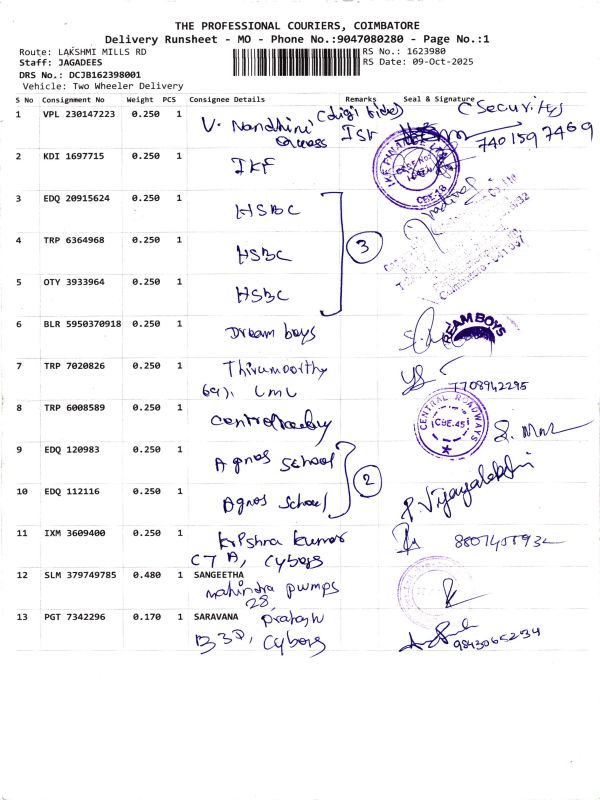 THE PROFESSIONAL COURIERS, COIMBATORE
Delivery Runsheet - MO - Phone No.:9047080280 - Page No.:1
Route: LAKSHMI MILLS RD
RS No.: 1623980
Staff: JAGADEES
RS Date: 09-Oct-2025
DRS No.: DCJB162398001
Vehicle: Two Wheeler Delivery
S No Consignment No Weight PCS Consignee Details Remarks Seal & Signature
1 VPL 230147223 0.250 1 V. Nandhini
7401597469
2 KDI 1697715 0.250 1 IKF
IKF FINANCE LTD
CBE-18
3 EDQ 20915624 0.250 1 HSBC
4 TRP 6364968 0.250 1 HSBC
3
5 OTY 3933964 0.250 1 HSBC
6 BLR 5950370918 0.250 1 Dream boys
REAM BOYS
7 TRP 7020826 0.250 1 Thirumoorthy
7708942295
8 TRP 6008589 0.250 1
CENTRAL ROADWAYS
CBE-45
9 EDQ 120983 0.250 1 Agnos School
2
10 EDQ 112116 0.250 1 Agnos School
P. Vijayalakshmi
11 IXM 3609400 0.250 1 Krishna kumar
C7A, Cybers
12 SLM 379749785 0.480 1 SANGEETHA
mahindra pumps
28,
13 PGT 7342296 0.170 1 SARAVANA Prakash
B3D, Cybers
9843065234